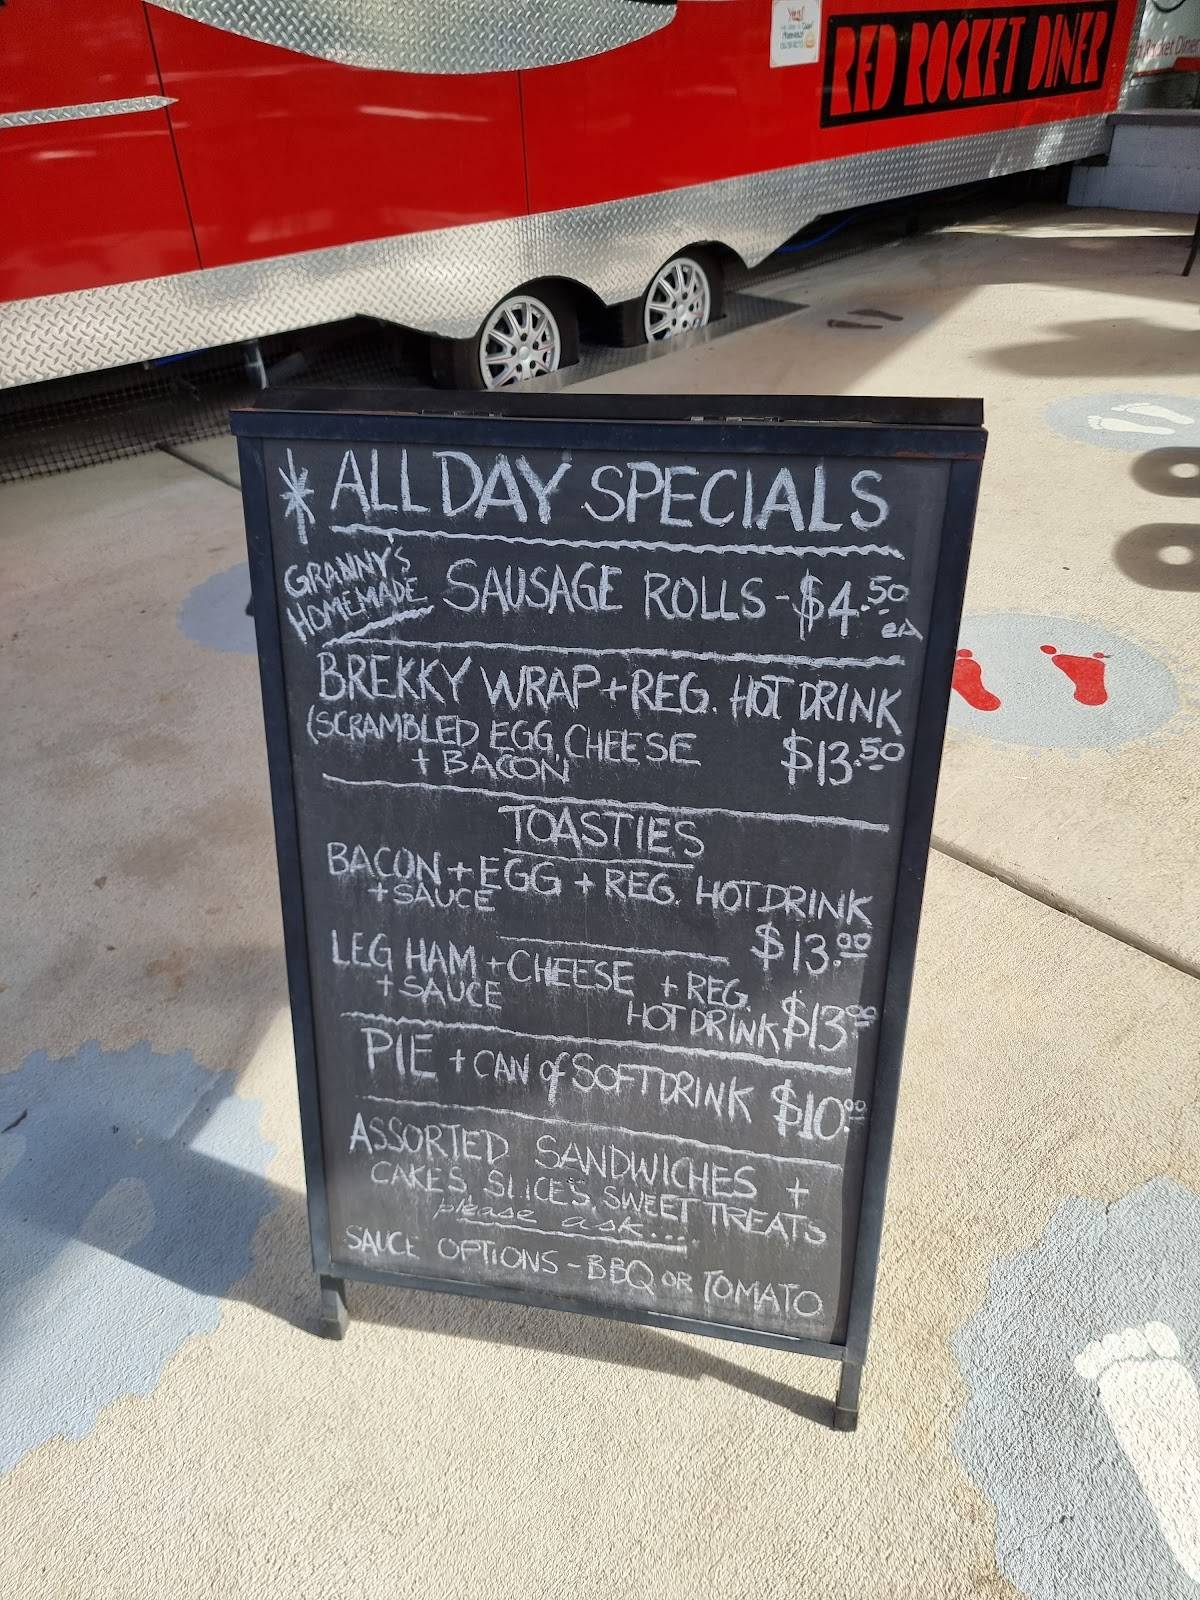 Yes!
RED ROCKET DINER
Rocket Diner
* ALL DAY SPECIALS
GRANNY'S
HOMEMADE SAUSAGE ROLLS - $4.50
ea
BREKKY WRAP + REG. HOT DRINK
(SCRAMBLED EGG, CHEESE $13.50
+ BACON
TOASTIES
BACON + EGG + REG. HOT DRINK
+ SAUCE
$13.00
LEG HAM + CHEESE + REG.
+ SAUCE HOT DRINK $13.00
PIE + CAN of SOFTDRINK $10.00
ASSORTED SANDWICHES +
CAKES, SLICES, SWEET TREATS
please ask....
SAUCE OPTIONS - BBQ OR TOMATO